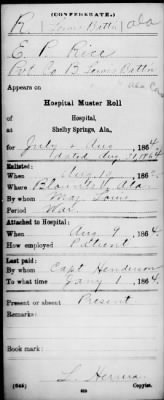 (CONFEDERATE.)
R. Lewis' Battn Ala
E. P. Rice
Pvt Co B. Lewis' Battn
Ala Cav
Appears on
Hospital Muster Roll
of Hospital,
at
Shelby Springs, Ala.,
for July & Aug, 1864
dated Aug 31, 1864
Enlisted:
When Aug 19, 186
Where Blountsville Ala
By whom Maj. Lewis
Period War
Attached to Hospital:
When Aug 9, 1864
How employed Patient
Last paid:
By whom Capt Henderson
To what time Jany 1, 1864
Present or absent Present
Remarks:
Book mark:
(645)
Copyist.